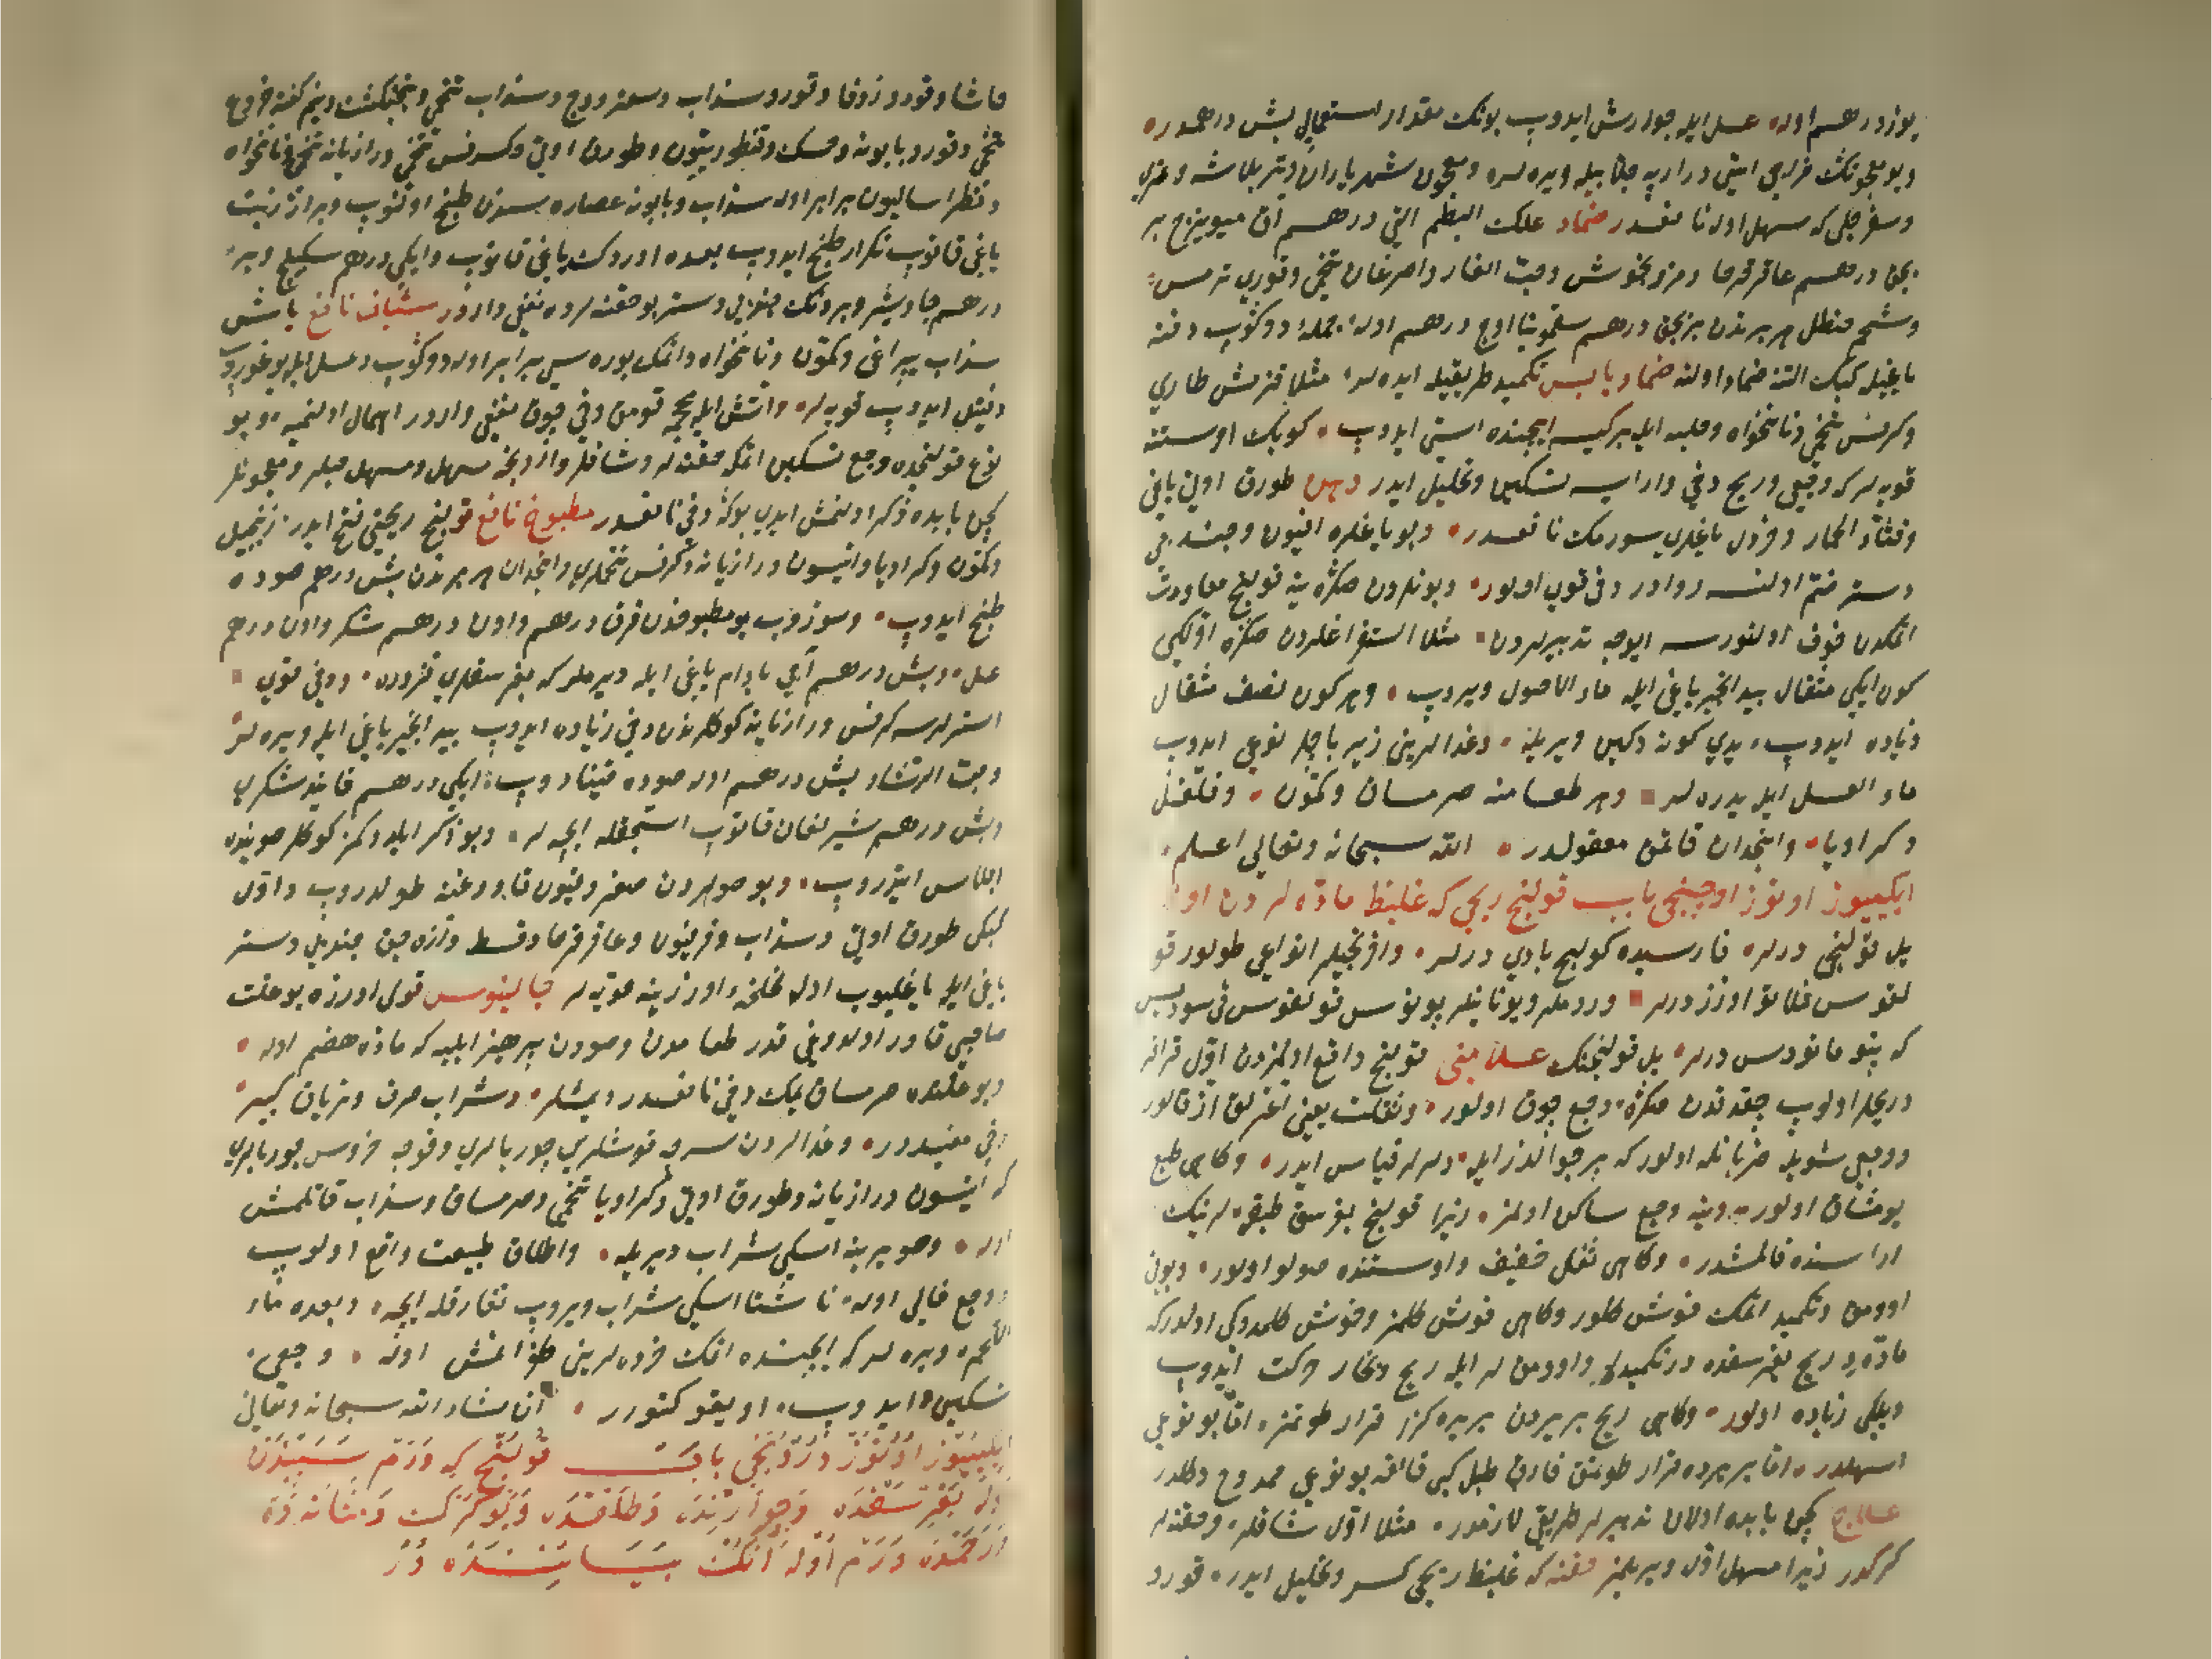 یوز درهم اوله عسل ایله جوارش ایدوب بونك مقدار استعمالی بش درهمدره
وبو معجونك مزاجی ایتی دراریه جلابیله ویره لره ومعجون شهریاران وتربلاشه وعزی
وسفرجلی که مسهل اوله نافعدر ضماد علك البطم التی درهم اق میویزج بر
بجق درهم عاقرقرحا ومرزنجوش وحب الغار واصرغان تخمی وقوری ترمس
وشحم حنظل هر برندن بر بجق درهم سقمونیا اوج درهم اوله جمله دوكوب دفنه
یاغیله كبك التنه ضماد اولنه ضماد یابس تکمید طریقیله ایده لر مثلا قزمش طاری
وکرفس تخمی ونانخواه وحلبه ایله بر كیسه ایجنده استی ایدوب کوبك اوستنه
قویه لر که وجعی وریح دخی وارایسه تسکین وتحلیل ایدر دهن طورق اوتی یاغی
وقثاء الحمار وفرفیون یاغلری سورمك نافعدر وبو یاغلره افیون وجند بی
دستر ضم اولنسه روادر دخی قوی اولور وبونلردن صکره ینه قولنج معاودت
اتمكدن خوف اولنورسه ایوجه تدبیرلردن مثلا استفراغلردن صکره اولکی
کون ایکی مثقال بید انجیر یاغی ایله ماء الاصول ویروب وهر کون نصف مثقال
زیاده ایدوب یدی کونه دکین ویریله وغدالرینی زیر باجلر نوعی ایدوب
ماء العسل ایله یدره لر وهر طعامنه صرمساق وکمون وفلفل
وکراویا وانجدان قاتمق معقولدر الله سبحانه وتعالی اعلم
ایکییوز اوتوز اوجنجی باب قولنج ریحی که غلیظ ماده لردن اولا
یل قولنجی درلر فارسیده کولنج بادی درلر وافرنجیلر انواعی طولور قو
لقوس فلاتو اوزز درلر ورومیلر ویونانیلر پونوس قولقوس فی سودیس
که پنوماتودس درلر یل قولنجنك علامتی قولنج واقع اولمزدن اول قراقر
وریحلر اولوب جقدقدن صکره وجع جوق اولور وثقلت یعنی اغرلق از قالور
ووجعی شویله ضربانله اولور که بر جوالدوز ایله دلرلر قیاس ایدر وکاهی طبع
یومشاق اولور وینه وجع ساکن اولمز زیرا قولنج بغرسق طبقه لرینك
اراسنده قالمشدر وکاهی ثفل خفیف واوستنده صولو اولور وبونی
اوومق وتکمید اتمك خوش کلور وکاهی خوش کلمز وخوش کلمدوکی اولدرکه
ماده ریح بغرسقده در تکمیدله واوومق لر ایله ریح وبخار حرکت ایدوب
دیلکی زیاده اولور وکاهی ریح بر یردن بر یره کزر قرار طوتمز اما بو نوعی
اسهلدر اما بر یرده قرار طوتمق قارن طبل کبی قالقه بو نوعی ممدوح دکلدر
علاج کجن بابده اولان تدبیرلر طریقی لازمدر مثلا اول شافلر وحقنه لر
کرکدر زیرا مسهل اول ویریلمز حقنه که غلیظ ریحی کسر وتحلیل ایدر قورد
حاشا وقورو زوفا وقورو سذاب وسعتر ووج وسذاب تخمی وبنجنکشت وینم کفته قروع
تخمی وقورو بابونه وحسك وقنطوریون وطورق اوتی وکرفس تخمی ورازیانه تخمی ونانخواه
وفطراسالیون برابر اوله سذاب وبابونه عصاره سندن طبخ اولنوب وبراز زیت
یاغی قاتوب تکرار طبخ ایدوب بعده اوردك یاغی قاتوب وایکی درهم سکبینج وبر
درهم جاوشیر وبر دنك جندبیدستر بو حقنه لرده نفعی واردر شیاف نافع یاش
سذاب یبراغی وکمون ونانخواه واتمك بوره سی برابر اوله دوکوب وعسل ایله یوغوروب
وفتیل ایدوب قویه لر واتش ایله محجمه قومق دخی جوق نفعی واردر اهمال اولنمیه وبو
نوع قولنجده وجع تسکین اتمکه حقنه لر وشافلر وارایجه مسهل ومسهل حبلر ومعجونلر
کجن بابده ذکر اولنمش ایدی بوکا دخی نافعدر مطبوخ نافع قولنج ریحی نفع ایدر زنجبیل
وکمون وکراویا وانیسون ورازیانه وکرفس تخملری وانجدان هر برندن بش درهم صوده
طبخ ایدوب وسوزوب بو مطبوخدن قرق درهم واون درهم شکر واون درهم
عسل وبش درهم آجی بادام یاغی ایله ویرملر که بغرسقلری قزدره ودخی قوی
استرلرسه کرفس ورازیانه کوکلرندن دخی زیاده ایدوب بید انجیر یاغی ایله ویره لر
وحب الرشاد بش درهم اوله صوده قیناد وب ایکی درهم فانید شکری
وبش درهم شیرلغان قاتوب استجقله ایجه لر وبو ذکر ایلدوکمز کوکلر صوینده
اجلاس ایتدروب وبو صولردن صغر وقیون قاووغنه طولدروب واول
کبکی طورق اوتی وسذاب وفرفیون وعاقرقرحا وقسط وازه جق جندبیدستر
یاغی ایله یاغلیوب اول محله اوزرینه قویه لر جالینوس قولی اوزره بو علت
صاحبی قادر اولدوغی قدر طعامدن وصودن پرهیز ایلیه که ماده هضم اوله
وبو علتده صرمساق یمك دخی نافعدر دیمشلر وشراب صرف وتریاق کبیر
دخی مفیددر وغدالردن سرجه قوشلری جوربالری وقوجه خروس جوربالری
که انیسون ورازیانه وطورق اوتی وکراویا تخمی وصرمساق وسذاب قاتلمش
اوله وصو یرینه اسکی شراب ویریله واطلاق طبیعت واقع اولوب
وجع خالی اوله ناشتا اسکی شراب ویروب نقارقله ایجه وبعده ماء
اللحم ویره لر که ایجنده اتك خرده لرینی طوغرامش اوله وجعی
تسکین ایدوب اویقو کتورر ان شاء الله سبحانه وتعالی
ایکییوز اوتوز دردنجی باب قولنج که ورم سببندن
اوله بغرسقده وجوارنده وطلاقده وبوکرکت ومثانه ده
ورحمده ورم اوله انك بیاننده در